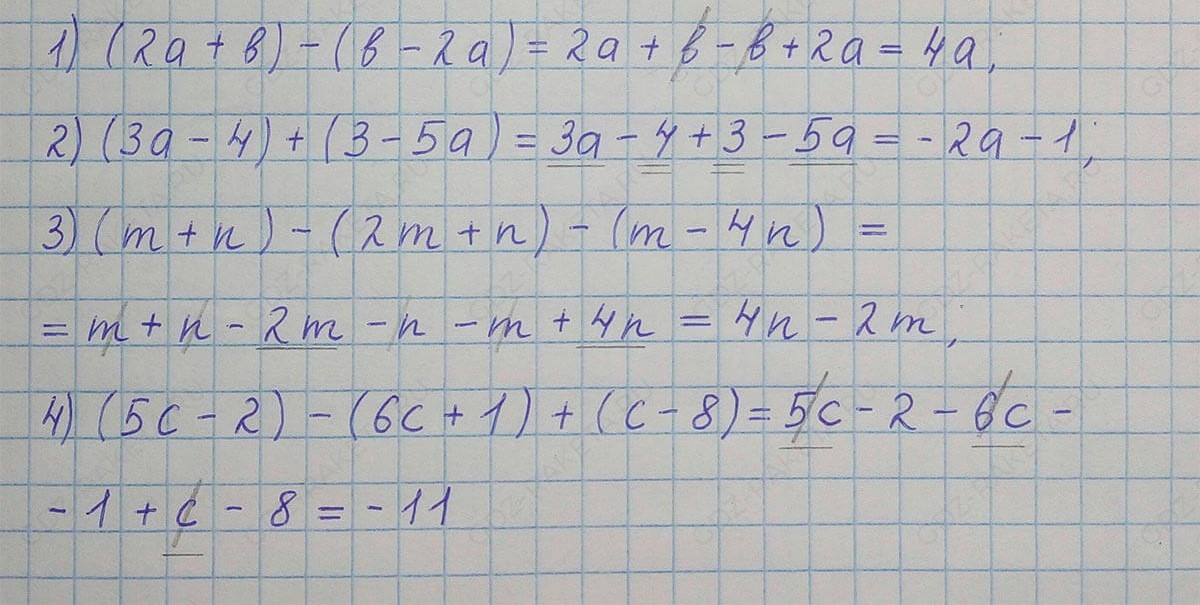 1) (2a + b) - (b - 2a) = 2a + b - b + 2a = 4a;
2) (3a - 4) + (3 - 5a) = 3a - 4 + 3 - 5a = -2a - 1;
3) (m + n) - (2m + n) - (m - 4n) =
= m + n - 2m - n - m + 4n = 4n - 2m;
4) (5c - 2) - (6c + 1) + (c - 8) = 5c - 2 - 6c -
- 1 + c - 8 = -11